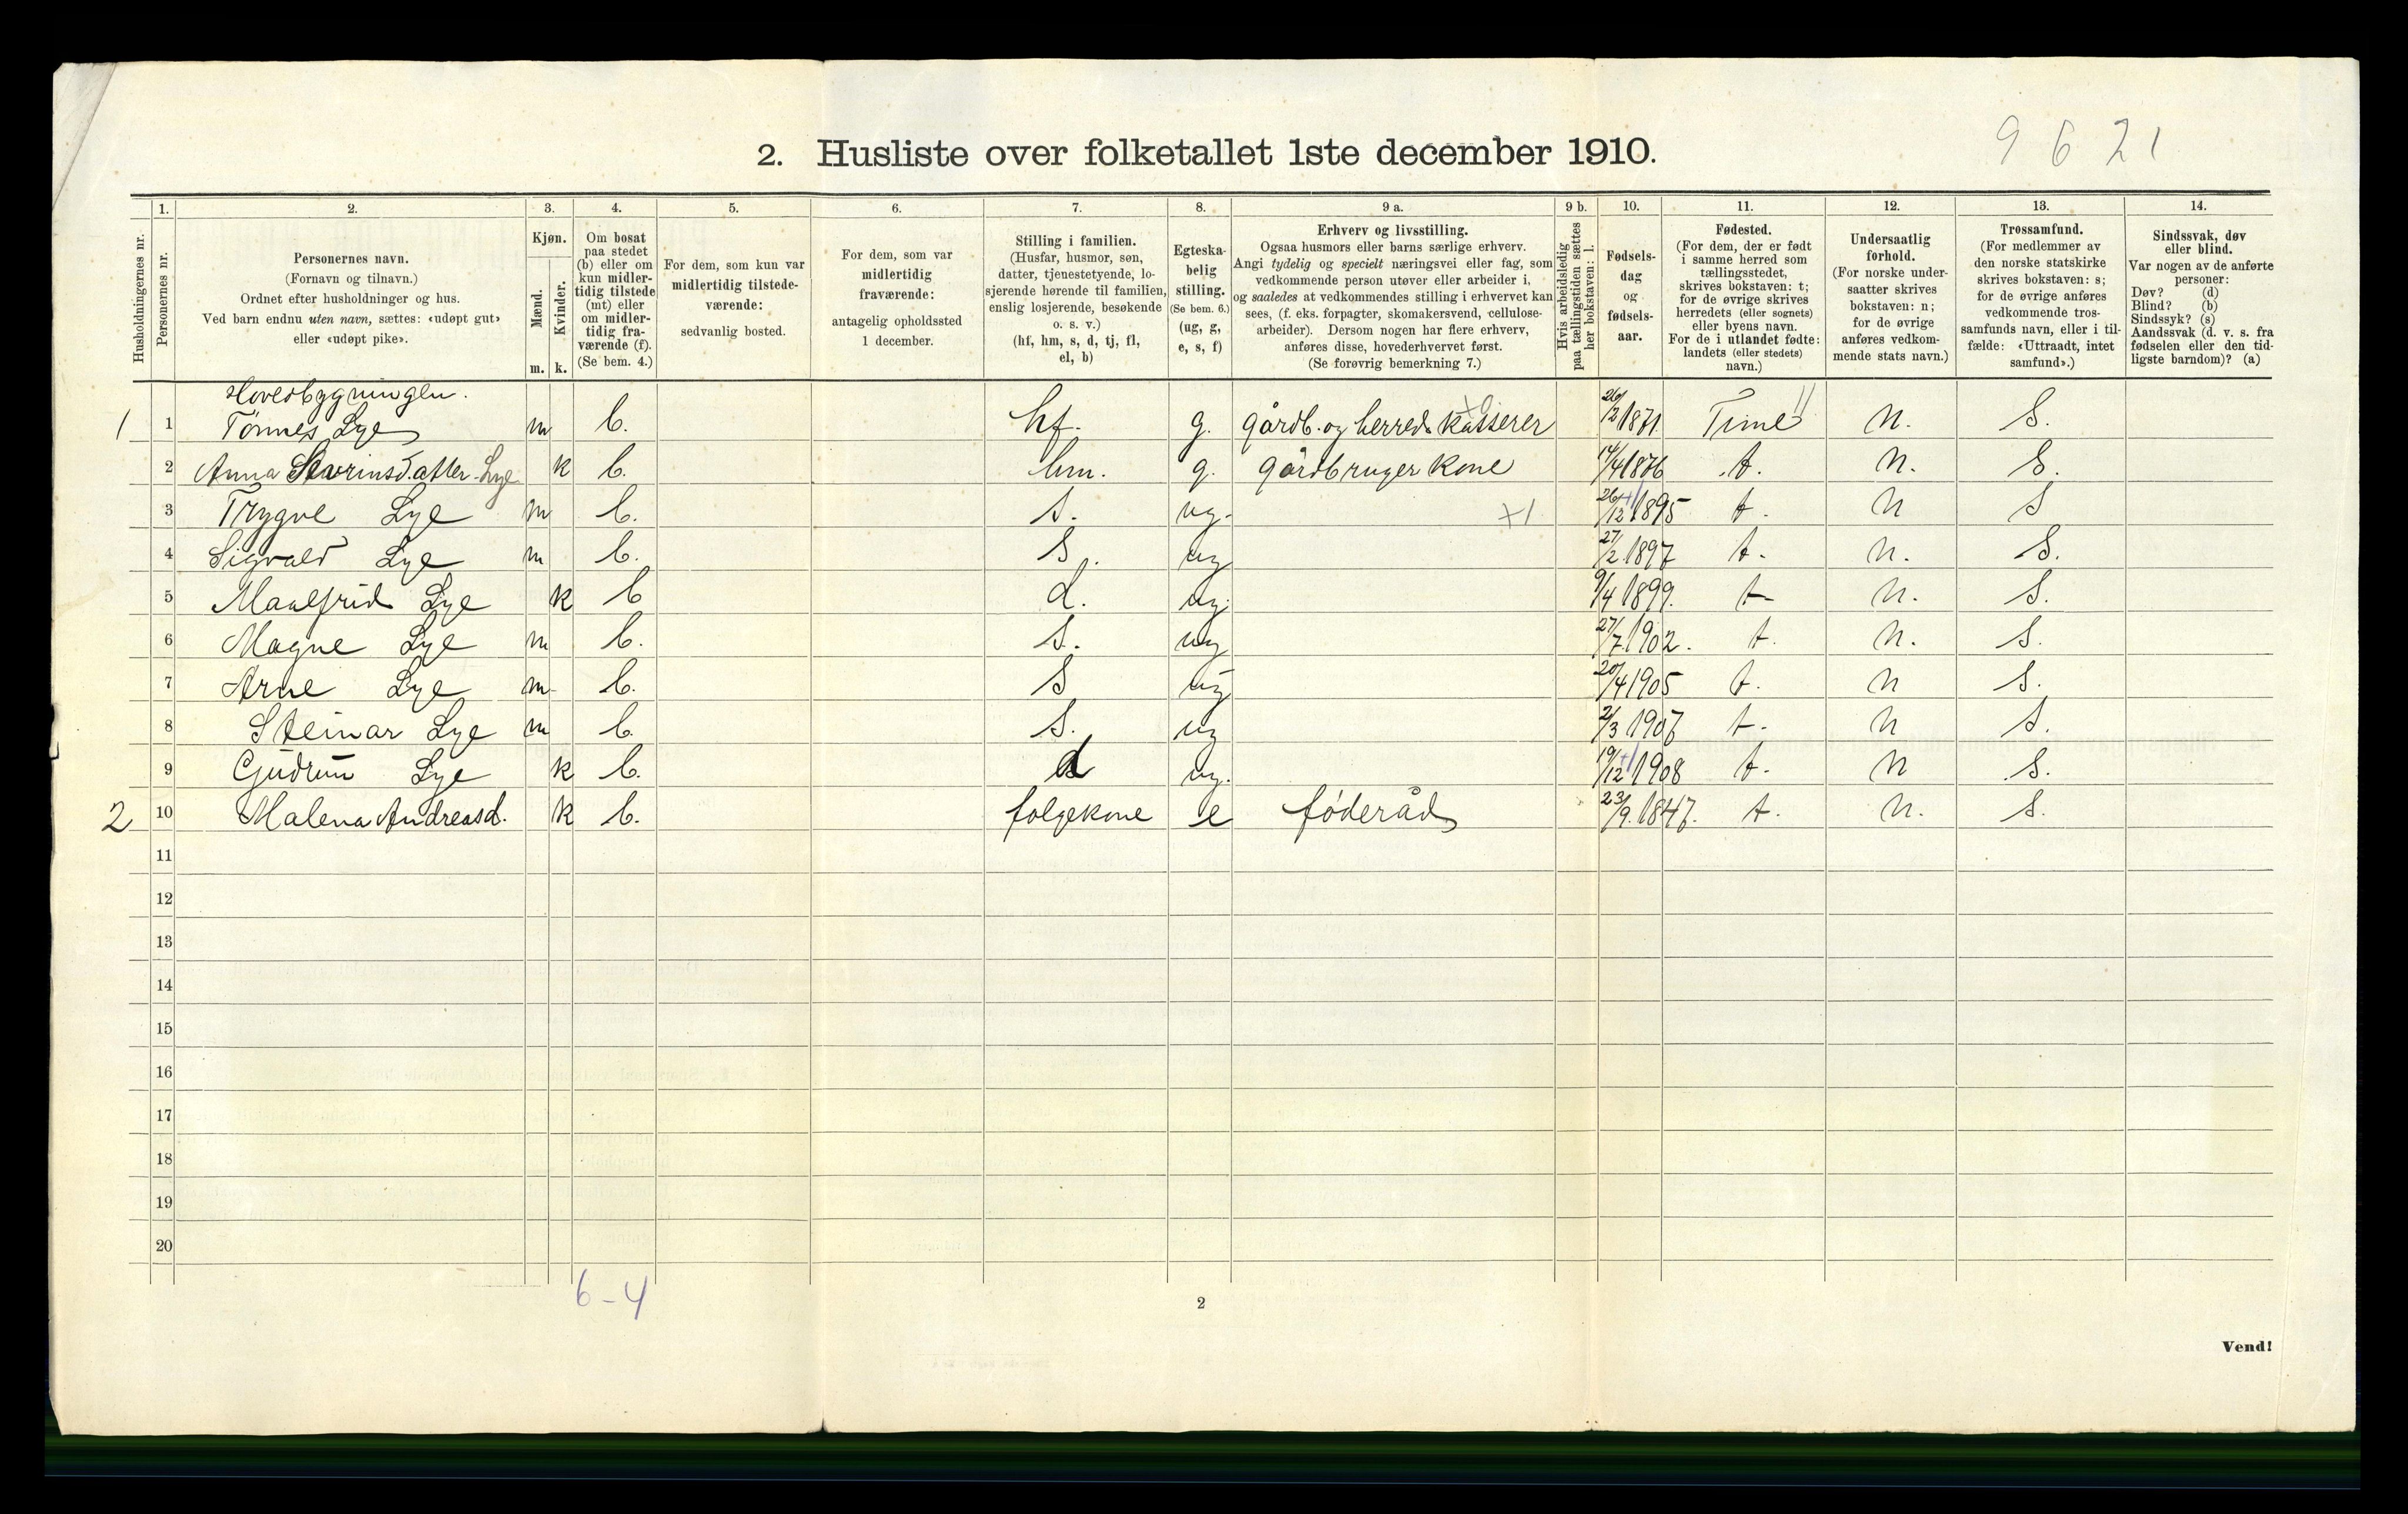 9 6 2 1
2. Husliste over folketallet 1ste december 1910.
Husholdningernes nr.
1.
Personernes nr.
2.
Personernes navn.
(Fornavn og tilnavn.)
Ordnet efter husholdninger og hus.
Ved barn endnu uten navn, sættes: «udøpt gut»
eller «udøpt pike».
3.
Kjøn.
Mænd.
Kvinder.
m. k.
4.
Om bosat
paa stedet
(b) eller om
kun midler-
tidig tilstede
(mt) eller
om midler-
tidig fra-
værende (f).
(Se bem. 4.)
5.
For dem, som kun var
midlertidig tilstede-
værende:
sedvanlig bosted.
6.
For dem, som var
midlertidig
fraværende:
antagelig opholdssted
1 december.
7.
Stilling i familien.
(Husfar, husmor, søn,
datter, tjenestetyende, lo-
sjerende hørende til familien,
enslig losjerende, besøkende
o. s. v.)
(hf, hm, s, d, tj, fl,
el, b)
8.
Egteska-
belig
stilling.
(Se bem. 6.)
(ug, g,
e, s, f)
9 a.
Erhverv og livsstilling.
Ogsaa husmors eller barns særlige erhverv.
Angi tydelig og specielt næringsvei eller fag, som
vedkommende person utøver eller arbeider i,
og saaledes at vedkommendes stilling i erhvervet kan
sees, (f. eks. forpagter, skomakersvend, cellulose-
arbeider). Dersom nogen har flere erhverv,
anføres disse, hovederhvervet først.
(Se forøvrig bemerkning 7.)
9 b.
Hvis arbeidsledig
paa tællingstiden sættes
her bokstaven: l.
10.
Fødsels-
dag
og
fødsels-
aar.
11.
Fødested.
(For dem, der er født
i samme herred som
tællingsstedet,
skrives bokstaven: t;
for de øvrige skrives
herredets (eller sognets)
eller byens navn.
For de i utlandet fødte:
landets (eller stedets)
navn.)
12.
Undersaatlig
forhold.
(For norske under-
saatter skrives
bokstaven: n;
for de øvrige
anføres vedkom-
mende stats navn.)
13.
Trossamfund.
(For medlemmer av
den norske statskirke
skrives bokstaven: s;
for de øvrige anføres
vedkommende tros-
samfunds navn, eller i til-
fælde: «Uttraadt, intet
samfund».)
14.
Sindssvak, døv
eller blind.
Var nogen av de anførte
personer:
Døv? (d)
Blind? (b)
Sindssyk? (s)
Aandssvak (d. v. s. fra
fødselen eller den tid-
ligste barndom)? (a)
Hovedbygningen.
1 1 Tønnes Lye m b. hf. g. gårdb. og herreds kasserer 26/2 1871 Time n. S.
2 Anna Sverinsdatter Lye k b. hm. g. gårdbruger kone 14/4 1876 t. n. S.
3 Trygve Lye m b. s. ug. 26/12 1895 t. n S
4 Sigvald Lye m b. S. ug 27/2 1897 t. n. S.
5 Maalfrid Lye k b d. ug. 9/4 1899. t n. S.
6 Magne Lye m b. s. ug 27/7 1902. t. n. S.
7 Arne Lye m b. S ug 20/4 1905 t. n S.
8 Steinar Lye m b. s. ug 2/3 1907 t. n S.
9 Gudrun Lye k b. d ug. 19/12 1908 t. n S.
2 10 Malena Andreasd. k b. folgekone e føderåd 23/9. 1847. t. n. S.
11
12
13
14
15
16
17
18
19
20
6-4
2
Vend!